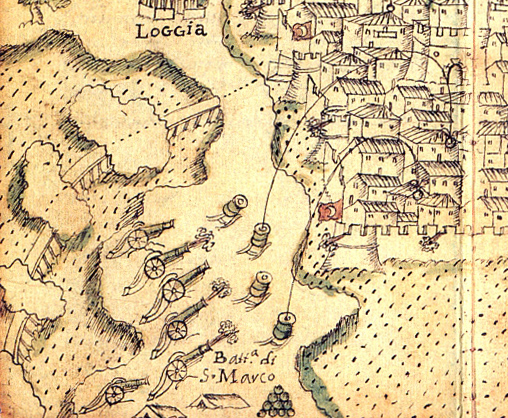 LOGGIA
Battª. di
S. Marco